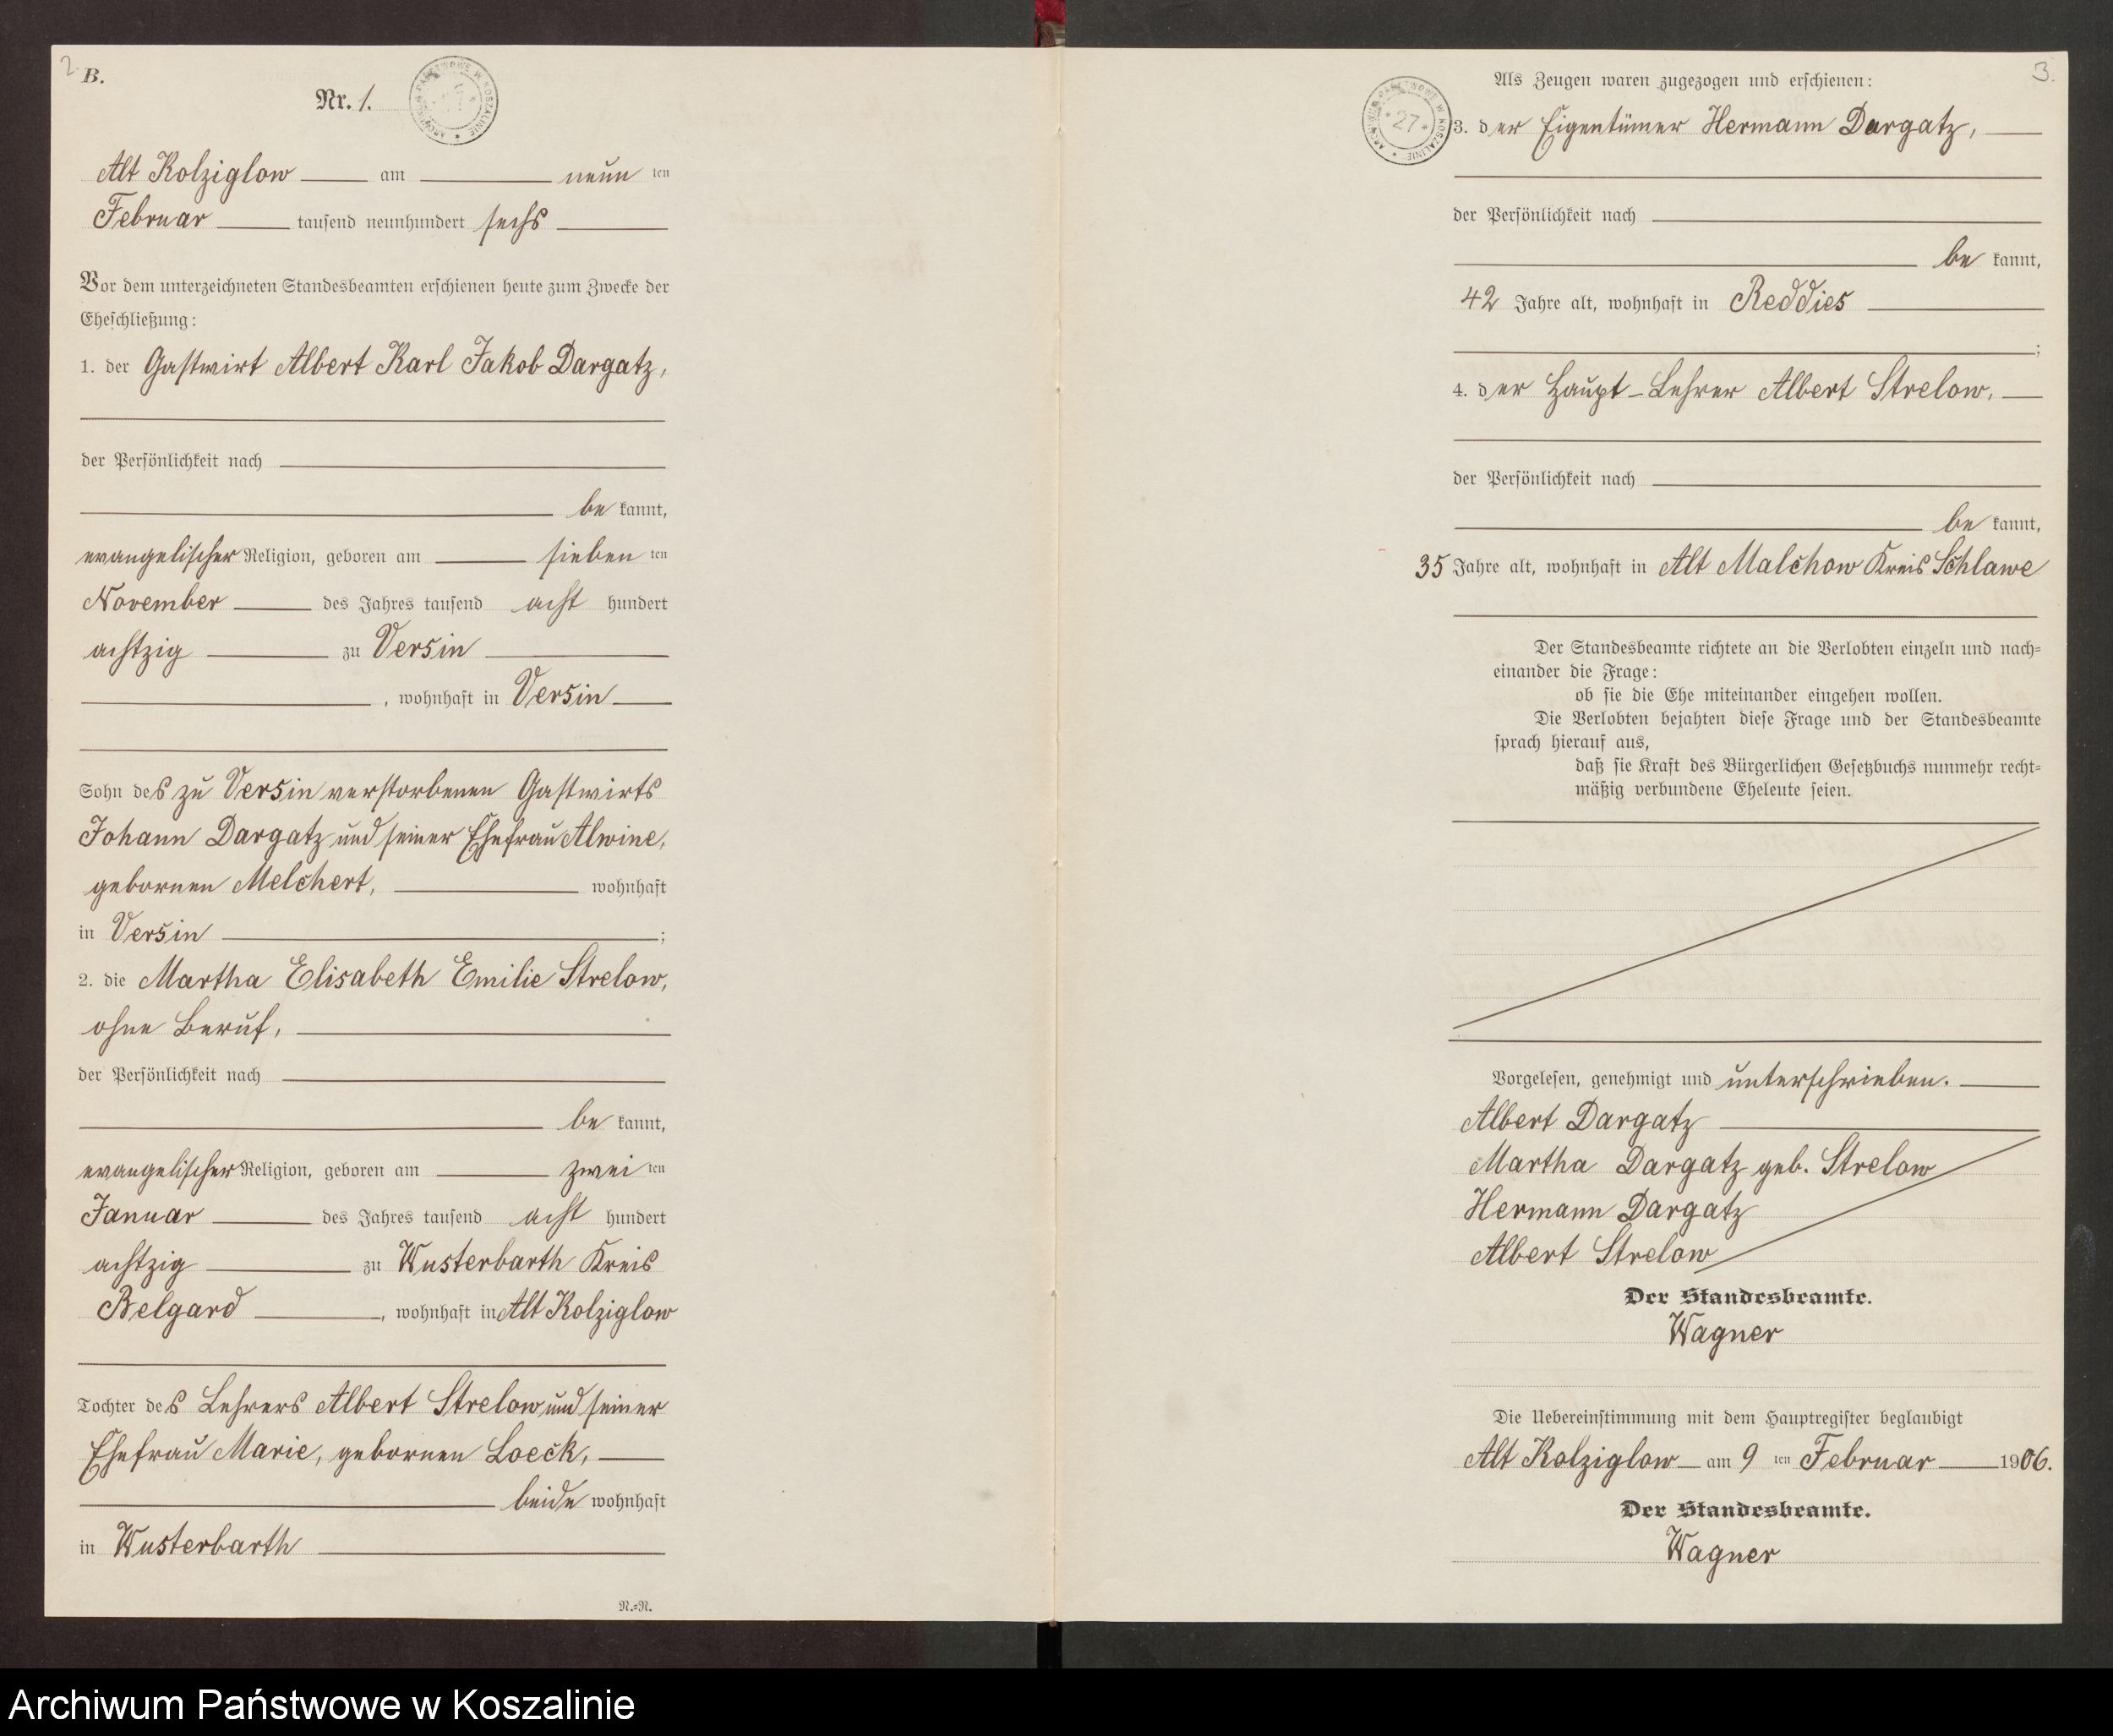 2.
B.
Nr. 1.
ARCHIWUM PAŃSTWOWE W KOSZALINIE * 27 *
Alt Kolziglow am neun ten
Februar tausend neunhundert sechs
Vor dem unterzeichneten Standesbeamten erschienen heute zum Zwecke der
Eheschließung:
1. der Gastwirt Albert Karl Jakob Dargatz,
der Persönlichkeit nach
be kannt,
evangelischer Religion, geboren am sieben ten
November des Jahres tausend acht hundert
achtzig zu Versin
, wohnhaft in Versin
Sohn des zu Versin verstorbenen Gastwirts
Johann Dargatz und seiner Ehefrau Alwine,
gebornen Melchert, wohnhaft
in Versin ;
2. die Martha Elisabeth Emilie Strelow,
ohne Beruf,
der Persönlichkeit nach
be kannt,
evangelischer Religion, geboren am zwei ten
Januar des Jahres tausend acht hundert
achtzig zu Wusterbarth Kreis
Belgard , wohnhaft in Alt Kolziglow
Tochter des Lehrers Albert Strelow und seiner
Ehefrau Marie, gebornen Loeck,
beide wohnhaft
in Wusterbarth
N.=N.
3.
Als Zeugen waren zugezogen und erschienen:
ARCHIWUM PAŃSTWOWE W KOSZALINIE * 27 *
3. der Eigentümer Hermann Dargatz,
der Persönlichkeit nach
be kannt,
42 Jahre alt, wohnhaft in Reddies
;
4. der Haupt-Lehrer Albert Strelow,
der Persönlichkeit nach
be kannt,
35 Jahre alt, wohnhaft in Alt Malchow Kreis Schlawe
Der Standesbeamte richtete an die Verlobten einzeln und nach=
einander die Frage:
ob sie die Ehe miteinander eingehen wollen.
Die Verlobten bejahten diese Frage und der Standesbeamte
sprach hierauf aus,
daß sie Kraft des Bürgerlichen Gesetzbuchs nunmehr recht=
mäßig verbundene Eheleute seien.
Vorgelesen, genehmigt und unterschrieben.
Albert Dargatz
Martha Dargatz geb. Strelow
Hermann Dargatz
Albert Strelow
Der Standesbeamte.
Wagner
Die Uebereinstimmung mit dem Hauptregister beglaubigt
Alt Kolziglow am 9 ten Februar 1906.
Der Standesbeamte.
Wagner
Archiwum Państwowe w Koszalinie